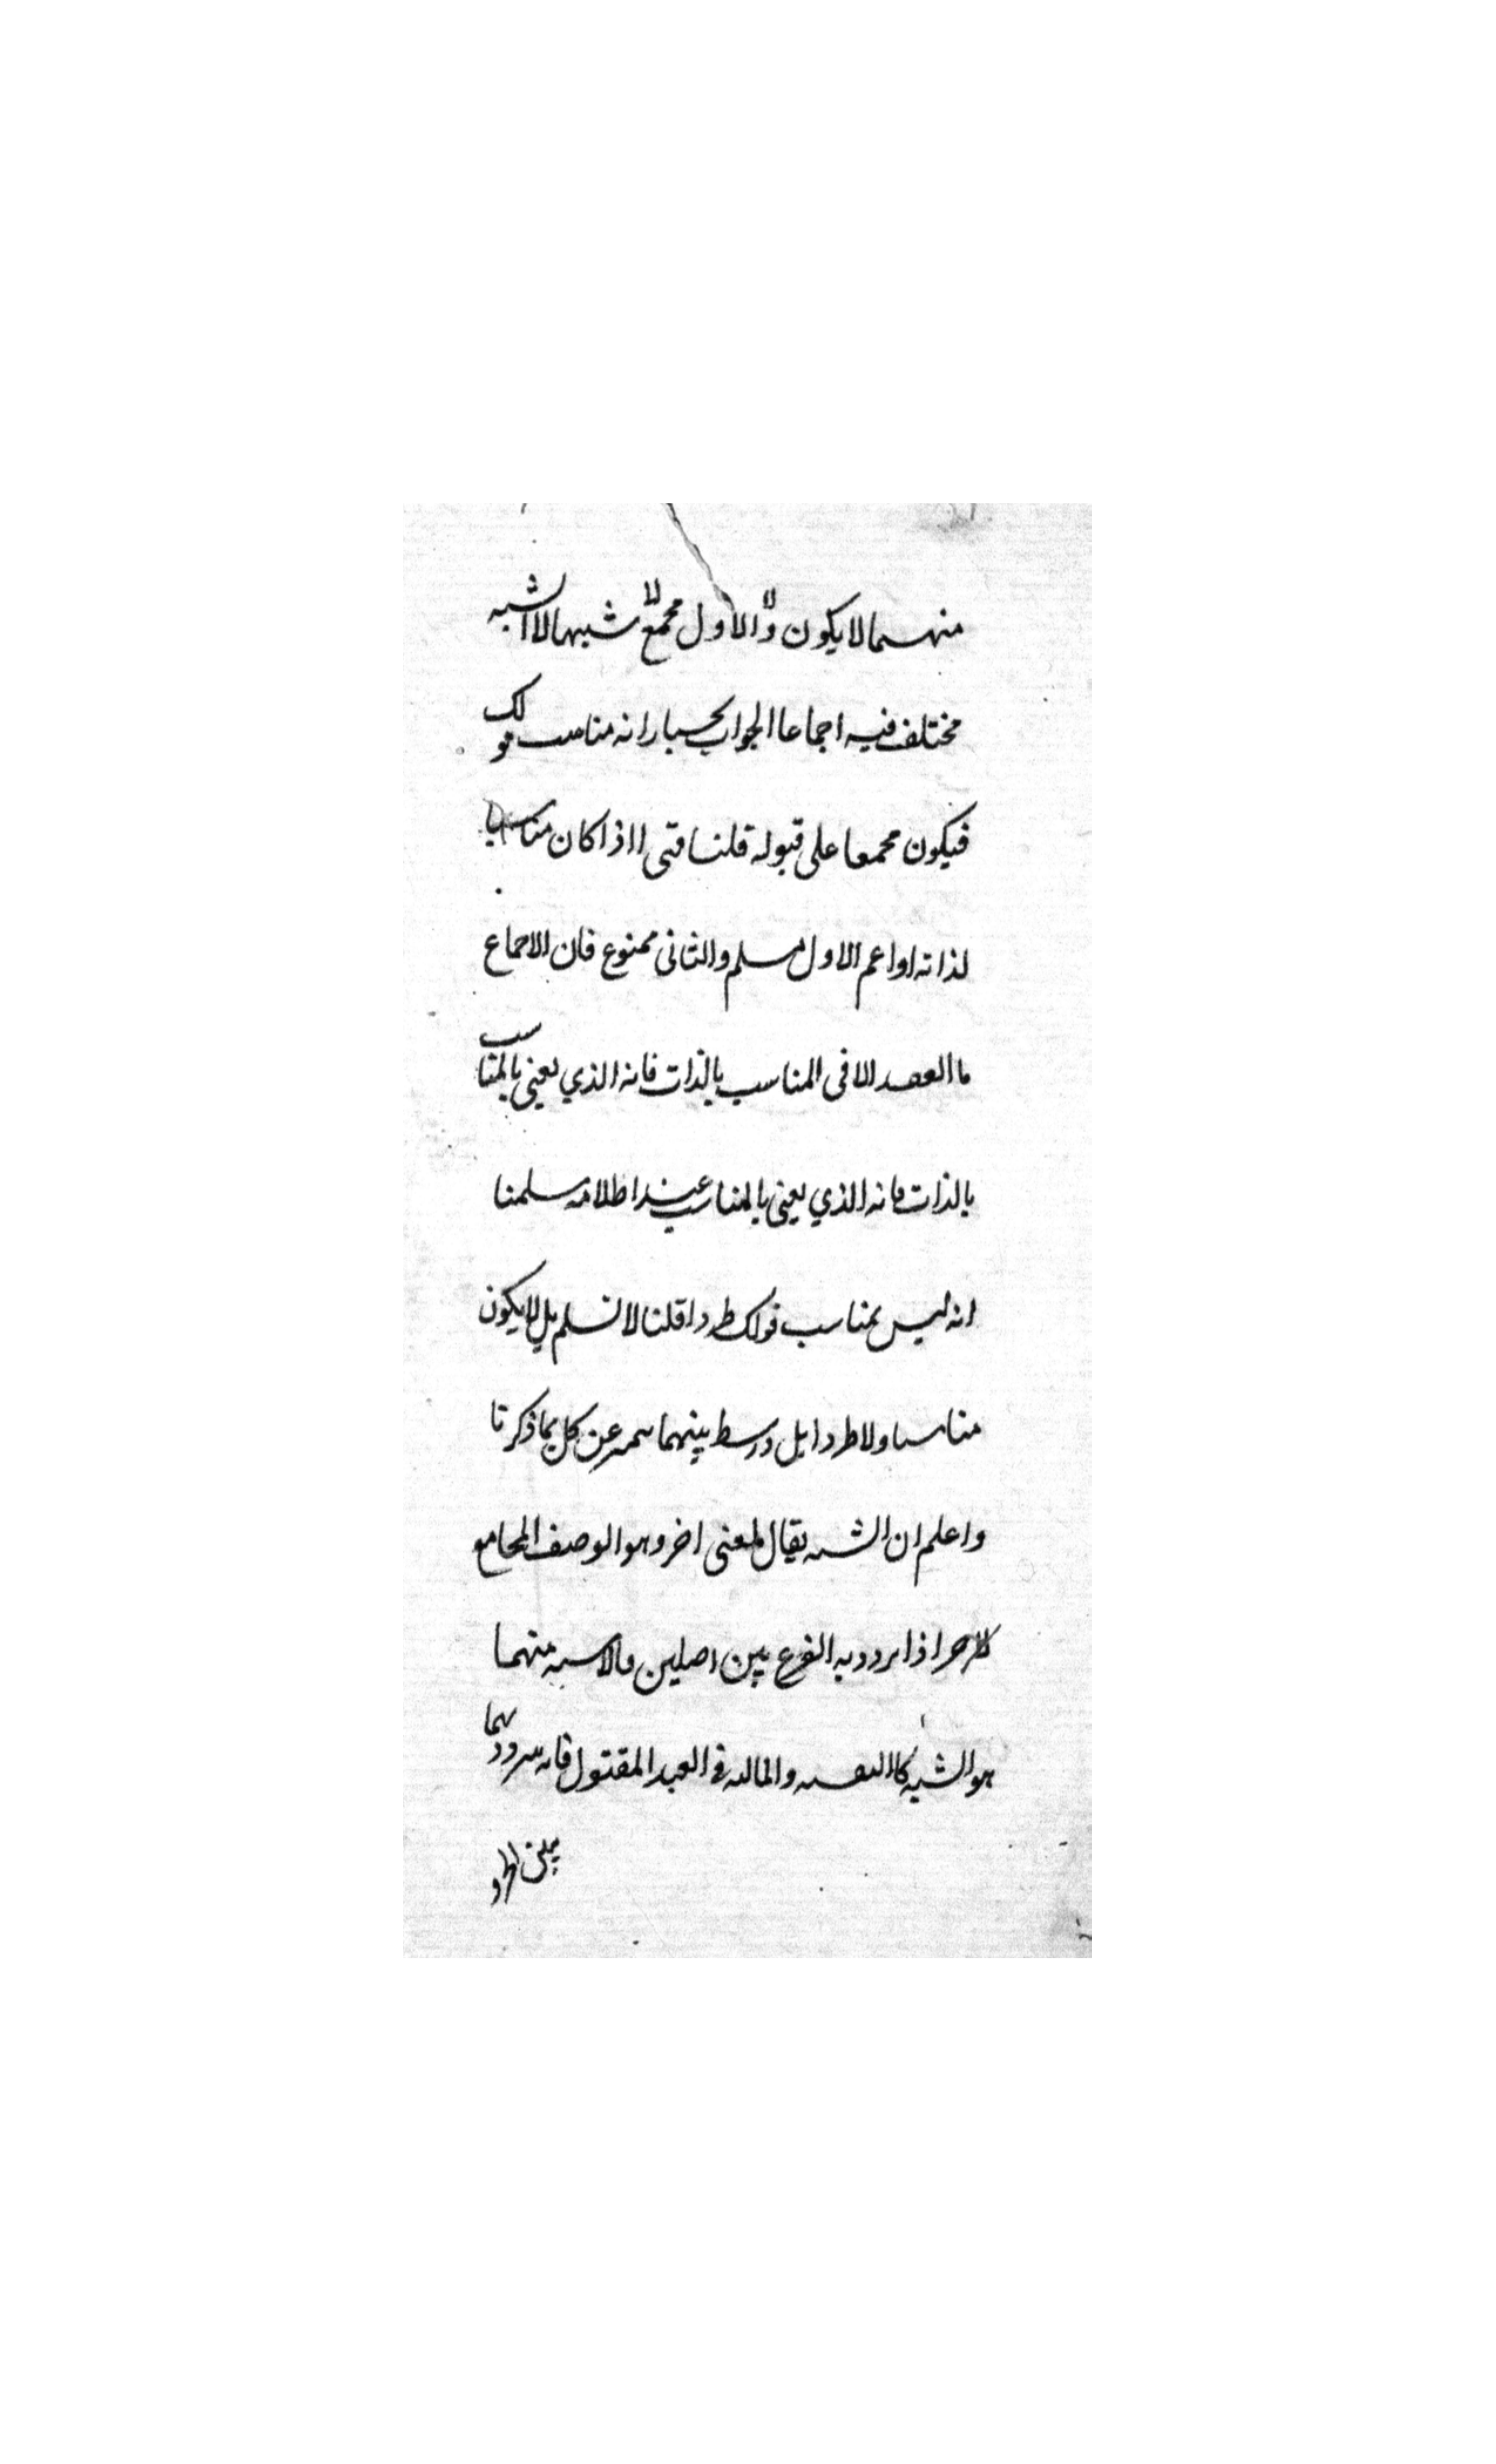 منهما لا يكون والاول مجمع شبيها لا الشبه
مختلف فيه اجماعا الجواب نحسار انه مناسب قولك
فيكون مجمعا على قبوله قلنا متى اذا كان مناسبا
لذاته او اعم الاول مسلم والثانى ممنوع فان الاجماع
ما انعقد الا فى المناسب بالذات فانه الذي يعنى بالمناسب
بالذات فانه الذي يعنى بالمناسب عند اطلاقه سلمنا
انه ليس بمناسب قولك طردا قلنا لا نسلم بل لا يكون
مناسبا ولا طردا بل وسط بينهما يتميز عن كل بما ذكرنا
واعلم ان الشبه يقال لمعنى اخر وهو الوصف الجامع
لاخر اذا تردد به الفرع بين اصلين فالاشبه منهما
هو الشبه كالنفسيه والماليه فى العبد المقتول فانه تردد بهما
بين